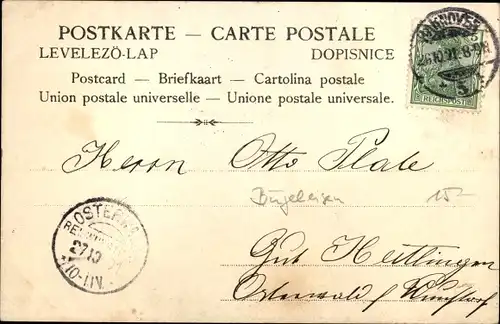 POSTKARTE — CARTE POSTALE
LEVELEZÖ-LAP DOPISNICE
Postcard — Briefkaart — Cartolina postale
Union postale universelle — Unione postale universale.
HANNOVER
REICHSPOST
Herrn Otto Plate
Bügeleisen 15-
OSTERW
27.10
Gut Heitlingen
Osterwald b/ Wunstorf